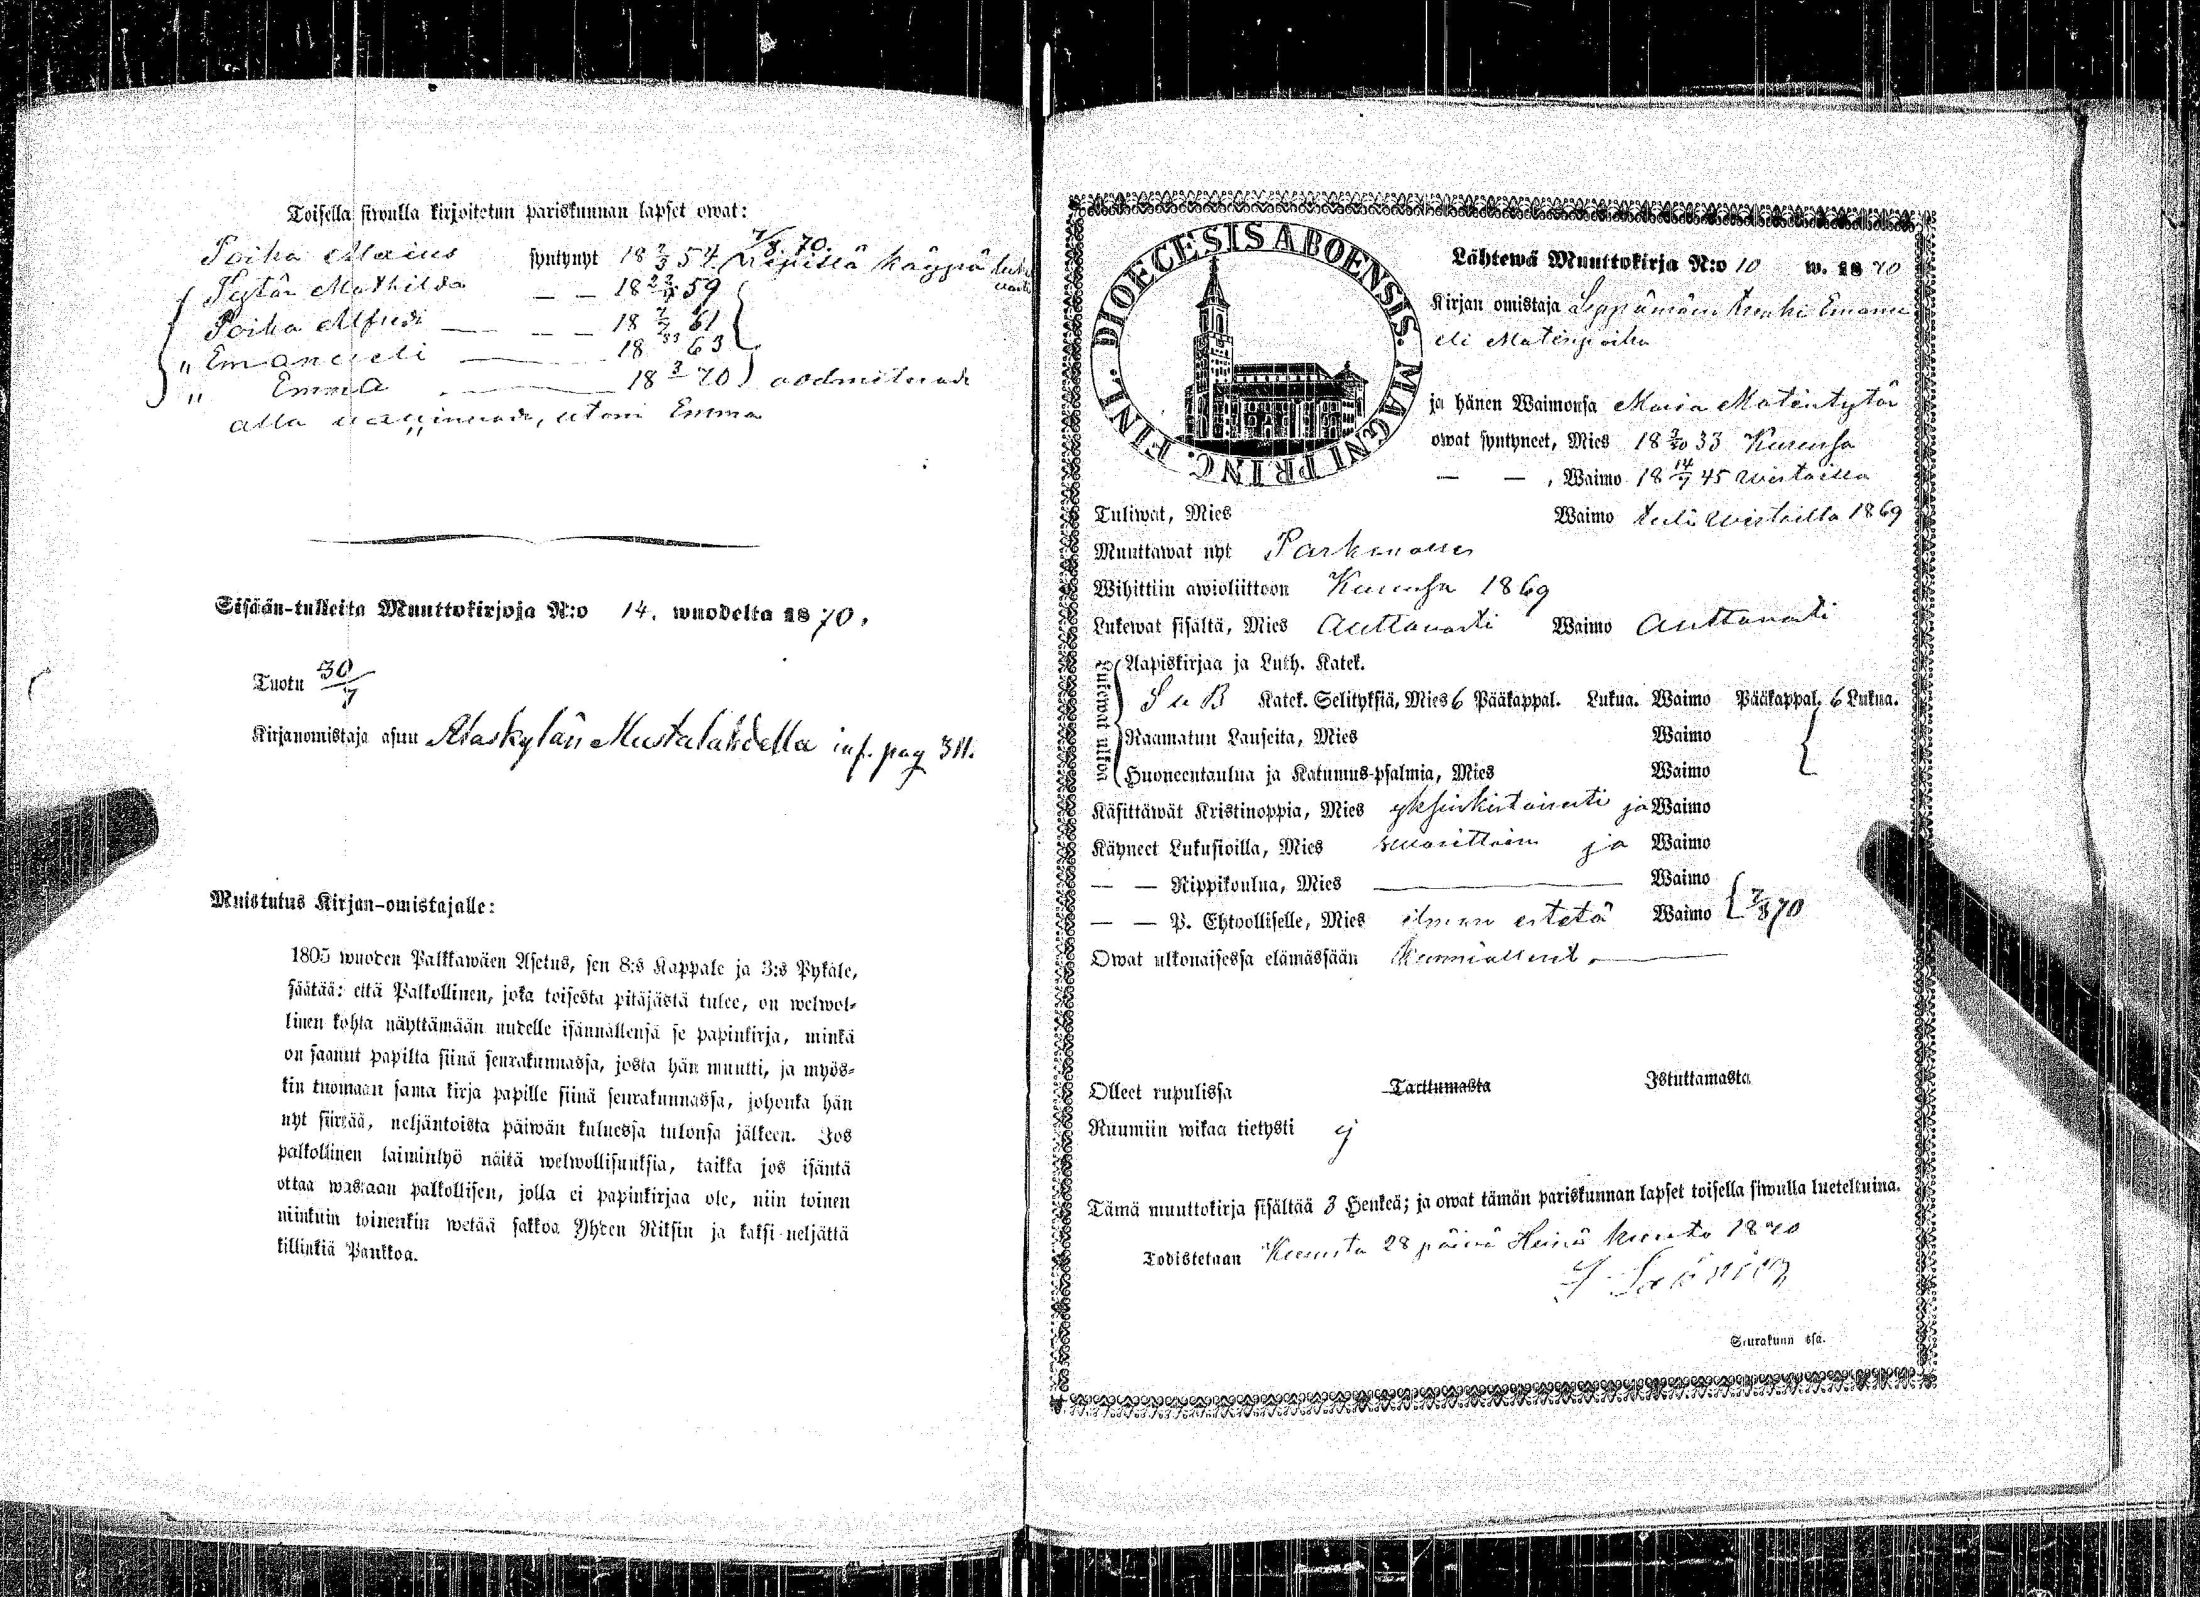 Toisella siwulla kirjoitetun pariskunnan lapset owat:
Poika syntynyt 18 2/3 54. 7/8 70.
Tytär Mathilda — — 18 59
Poika Alfred — — — 18 61
" Emanueli — 18 63
" Emma — 18 3/ 70
alla utom Emma
Sisään-tulleita Muuttokirjoja N:o 14. wuodelta 1870.
Tuotu 30/7
Kirjanomistaja asuu Alaskylän Mustalahdella inf. pag 311.
Muistutus Kirjan-omistajalle:
1805 wuoden Palkkawäen Asetus, sen 8:s Kappale ja 3:s Pykäle,
säätää: että Palkollinen, joka toisesta pitäjästä tulee, on welwol-
linen kohta näyttämään uudelle isännällensä se papinkirja, minkä
on saanut papilta siinä seurakunnassa, josta hän muutti, ja myös-
kin tuomaan sama kirja papille siinä seurakunnassa, johonka hän
nyt siirtää, neljäntoista päiwän kuluessa tulonsa jälkeen. Jos
palkollinen laiminlyö näitä welwollisuuksia, taikka jos isäntä
ottaa wastaan palkollisen, jolla ei papinkirjaa ole, niin toinen
niinkuin toinenkin wetää sakkoa Yhden Riksin ja kaksi neljättä
killinkiä Pankkoa.
DIOECESIS ABOENSIS. MAGNI PRINC. FINL.
Lähtewä Muuttokirja N:o 10 w. 1870
Kirjan omistaja Seppämäen Renki Emanu
eli Matinpoika
ja hänen Waimonsa Maria Matintytär
owat syntyneet, Mies 18 33 Kurussa
— — , Waimo 18 14/7 45
Tuliwat, Mies Waimo tuli 1869
Muuttawat nyt Parkanoon
Wihittiin awioliittoon Kurussa 1869
Lukewat sisältä, Mies Auttawasti Waimo Auttawasti
Lukewat ulkoa
Aapiskirjaa ja Luth. Katek.
S u B Katek. Selityksiä, Mies 6 Pääkappal. Lukua. Waimo Pääkappal. 6 Lukua.
Raamatun Lauseita, Mies Waimo
Huoneentaulua ja Katumus-psalmia, Mies Waimo
Käsittäwät Kristinoppia, Mies yksinkertaisesti ja Waimo
Käyneet Lukusioilla, Mies ja Waimo
— — Rippikoulua, Mies — Waimo
— — P. Ehtoolliselle, Mies ilman estetä Waimo 7/8 70
Owat ulkonaisessa elämässään kunnialliset.—
Olleet rupulissa Tarttumasta Istuttamasta
Ruumiin wikaa tietysti ej
Tämä muuttokirja sisältää 3 Henkeä; ja owat tämän pariskunnan lapset toisella siwulla lueteltuina.
Todistetaan Kurusta 28 päivä Heinä kuuta 1870
Seurakunn ssa.